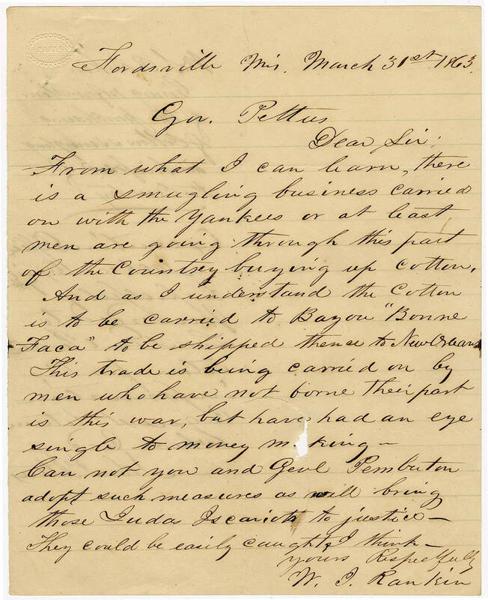 Fordsville Mis. March 31st 1863.
Gov. Pettus
Dear Sir;
From what I can learn, there
is a smugling business carried
on with the Yankees or at least
men are going through this part
of the Countrey buying up cotton.
And as I understand the Cotton
is to be carried to Bayou "Bonne
Faca" to be shipped thence to New Orleans
This trade is being carried on by
men who have not borne their part
is this war, but have had an eye
single to money making—
Can not you and Genl Pemburton
adopt such measures as will bring
those Judas Iscariots to justice—
They could be easily caught I think—
yours Respectfully
W. J. Rankin